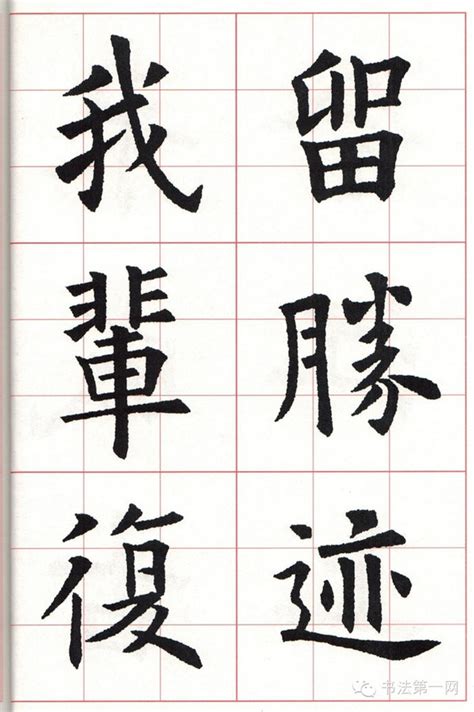 留勝迹
我輩復
书法第一网